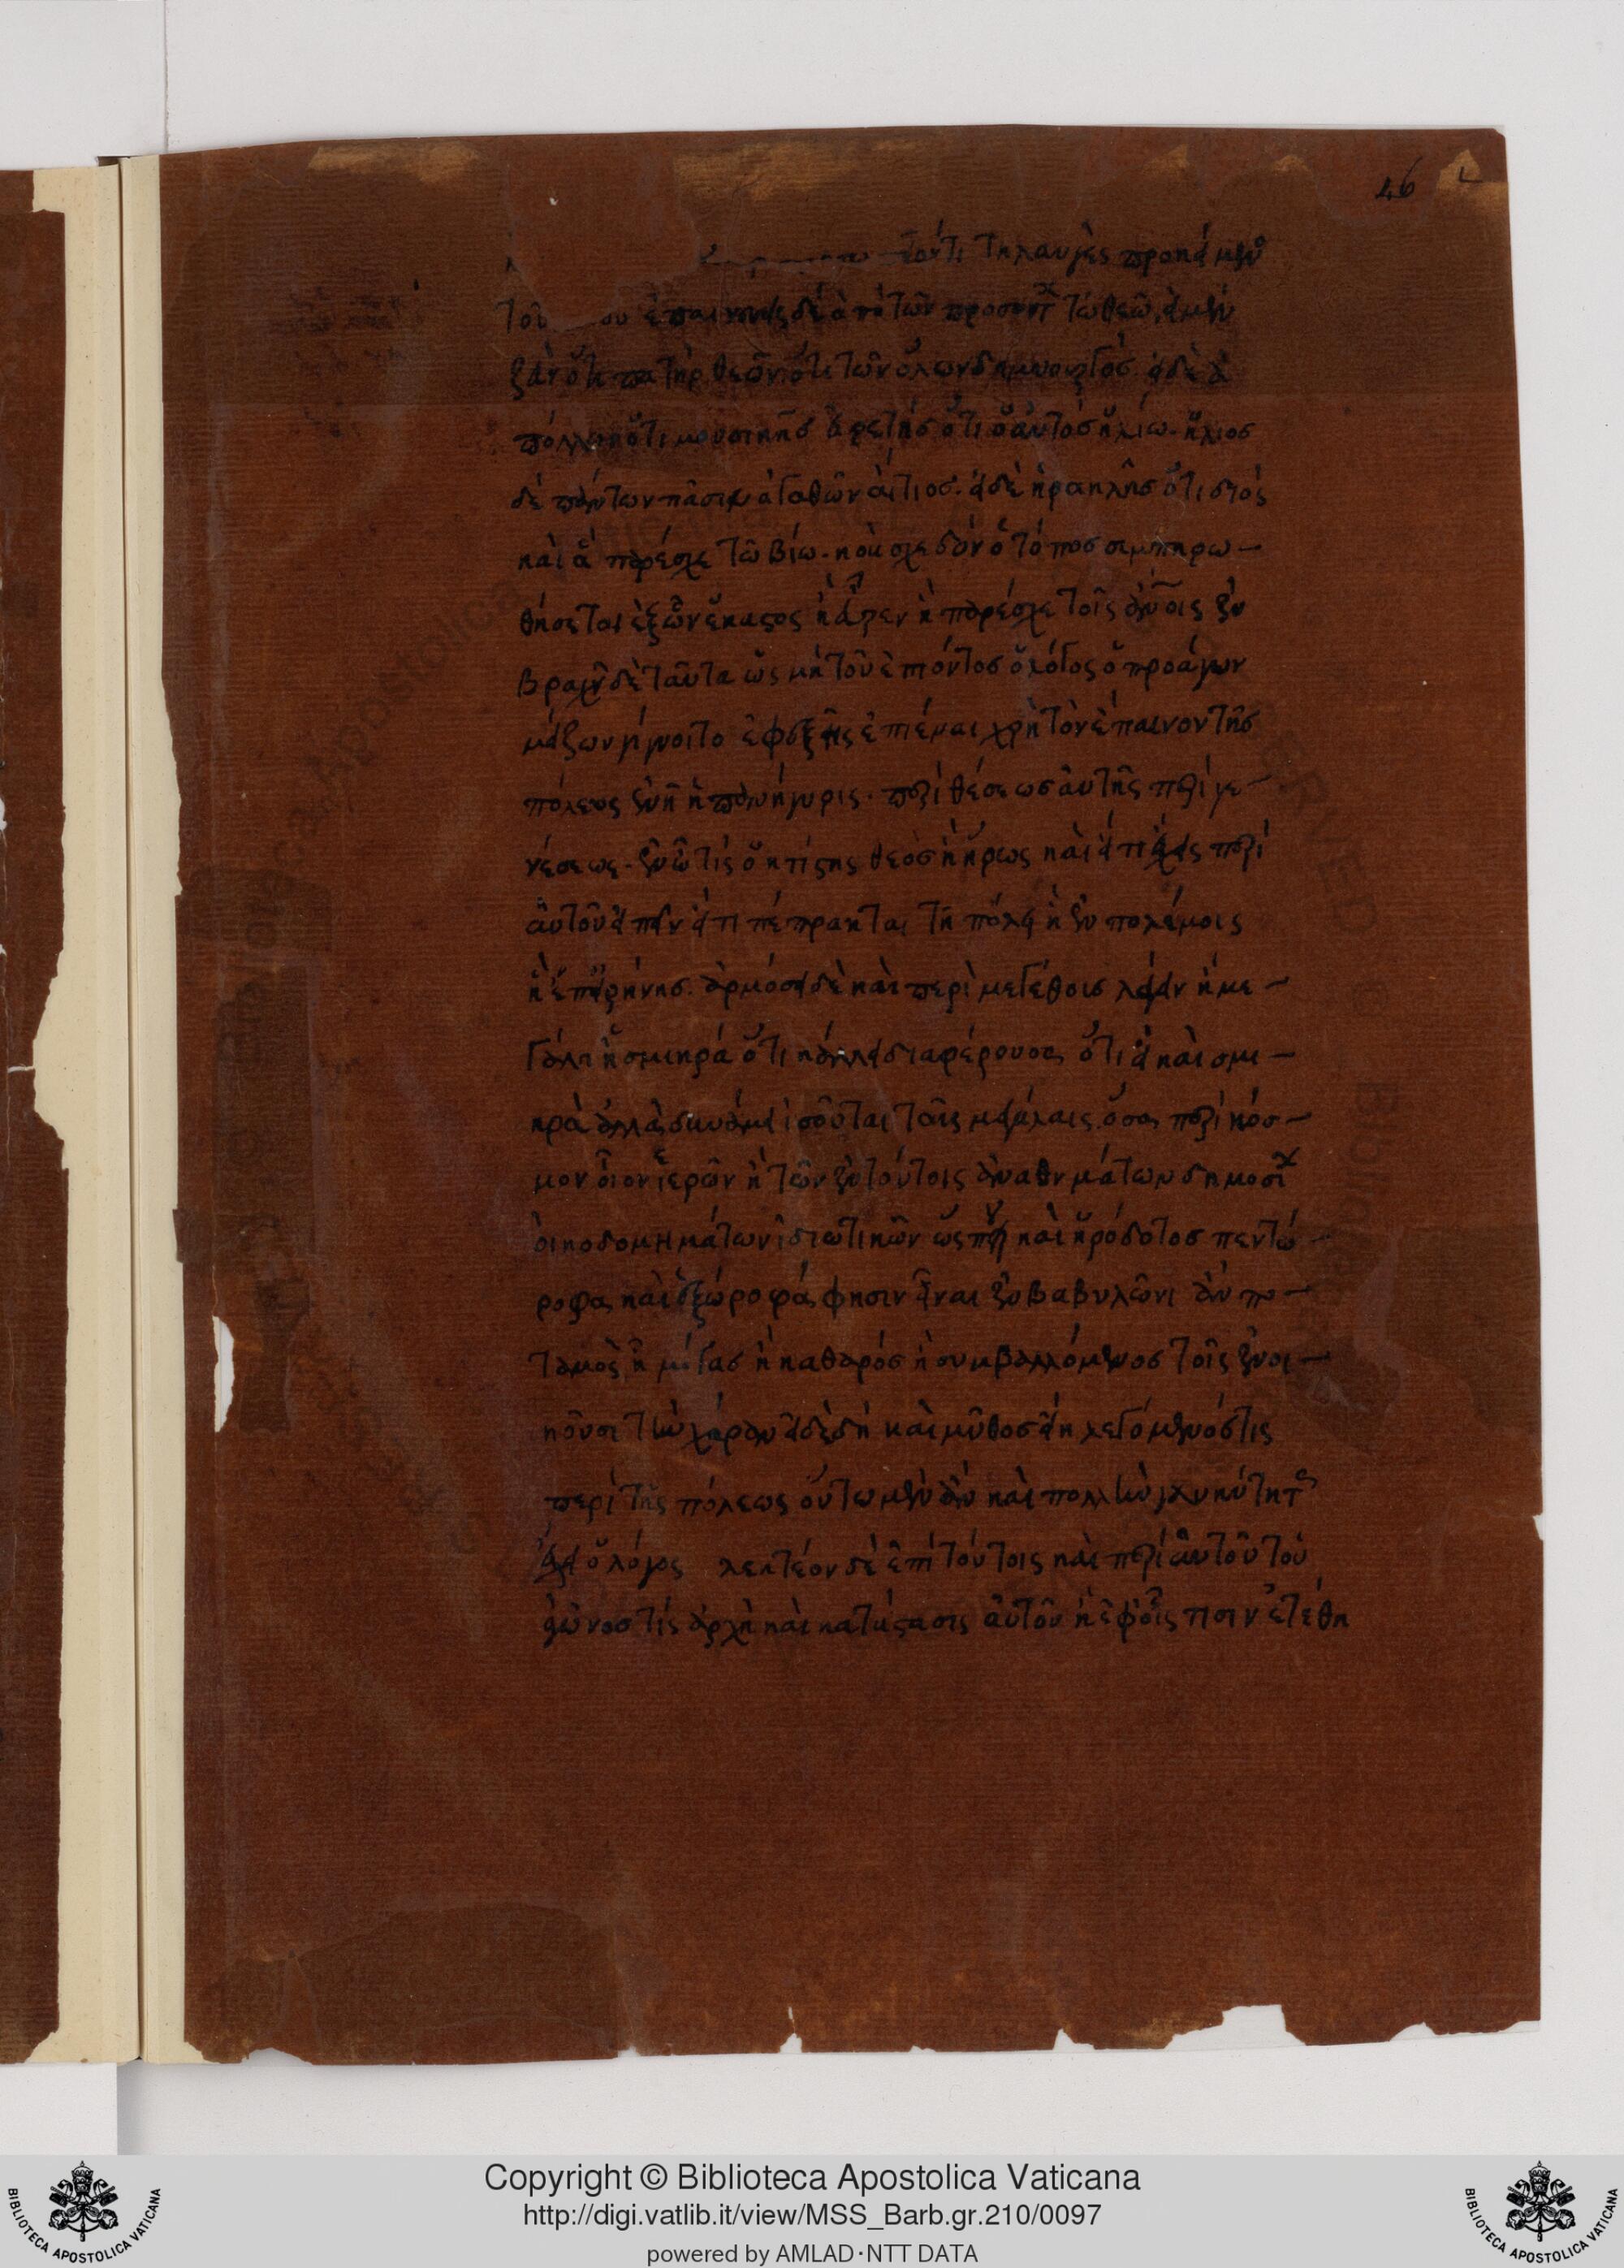 46
τοῦτι τηλαυγὲς προκείμενον
τοῦ ἔπαινος δὲ ἀπὸ τῶν προσόντων τῶ θεῶ, εἰ μὲν
ζεὺς ὅτι πατὴρ θεῶν, ὅτι τῶν ὅλων δημιουργός. εἰ δὲ ἀ
πόλλων ὅτι μουσικῆς εὑρετὴς ὅτι ὁ αὐτὸς ἡλίω. ἥλιος
δὲ πάντων πᾶσιν ἀγαθῶν αἴτιος. εἰ δὲ ἡρακλῆς ὅτι διὸς
καὶ ἃ παρέσχε τῶ βίω. καὶ σχεδὸν ὁ τόπος συμπληρω-
θήσεται ἐξ ὧν ἕκαστος ἢ εὗρεν ἢ παρέσχε τοῖς ἀνοις ἐν
βραχεῖ δὲ ταῦτα ὡς μὴ τοῦ ἐπιόντος ὁ λόγος ὁ προάγων
μείζων γίγνοιτο ἐφεξῆς ἐπιέναι χρὴ τὸν ἔπαινον τῆς
πόλεως ἐν ἧ ἡ πανήγυρις. περὶ θέσεως αὐτῆς περὶ γε-
νέσεως. ἐν ὧ τίς ὁ κτίστης θεὸς ἢ ἥρως καὶ εἴ τι ἔχεις περὶ
αὐτοῦ εἰπεῖν εἴ τι πέπρακται τῆ πόλει ἢ ἐν πολέμοις
ἢ ἐπ' εἰρήνης. ἁρμόσει δὲ καὶ περὶ μεγέθους λέγειν ἢ με-
γάλη ἢ σμικρά ὅτι κάλλει διαφέρουσα ὅτι εἰ καὶ σμι-
κρὰ ἀλλὰ δυνάμει ἰσοῦται ταῖς μεγάλαις. ὅσα περὶ κόσ-
μον οἷον ἱερῶν ἢ τῶν ἐν τούτοις ἀναθημάτων δημοσίων
οἰκοδομημάτων ἰδιωτικῶν ὥς που καὶ ἡρόδοτος πεντώ-
ροφα καὶ ἑξώροφά φησιν εἶναι ἐν βαβυλῶνι ἂν πο-
ταμὸς ἦ μέγας ἢ καθαρός ἢ συμβαλλόμενος τοῖς ἐνοι-
κοῦσι τὴν χώραν εἰ δὲ δὴ καὶ μῦθος εἴη λεγόμενός τις
περὶ τῆς πόλεως οὕτω μὲν ἂν καὶ πολλὴν γλυκύτητα
ἔχει ὁ λόγος λεκτέον δὲ ἐπὶ τούτοις καὶ περὶ αὐτοῦ τοῦ
ἀγῶνος τίς ἀρχὴ καὶ κατάστασις αὐτοῦ ἢ ἐφ' οἷς τισιν ἐτέθη
Copyright © Biblioteca Apostolica Vaticana
http://digi.vatlib.it/view/MSS_Barb.gr.210/0097
powered by AMLAD·NTT DATA
BIBLIOTECA APOSTOLICA VATICANA
BIBLIOTECA APOSTOLICA VATICANA